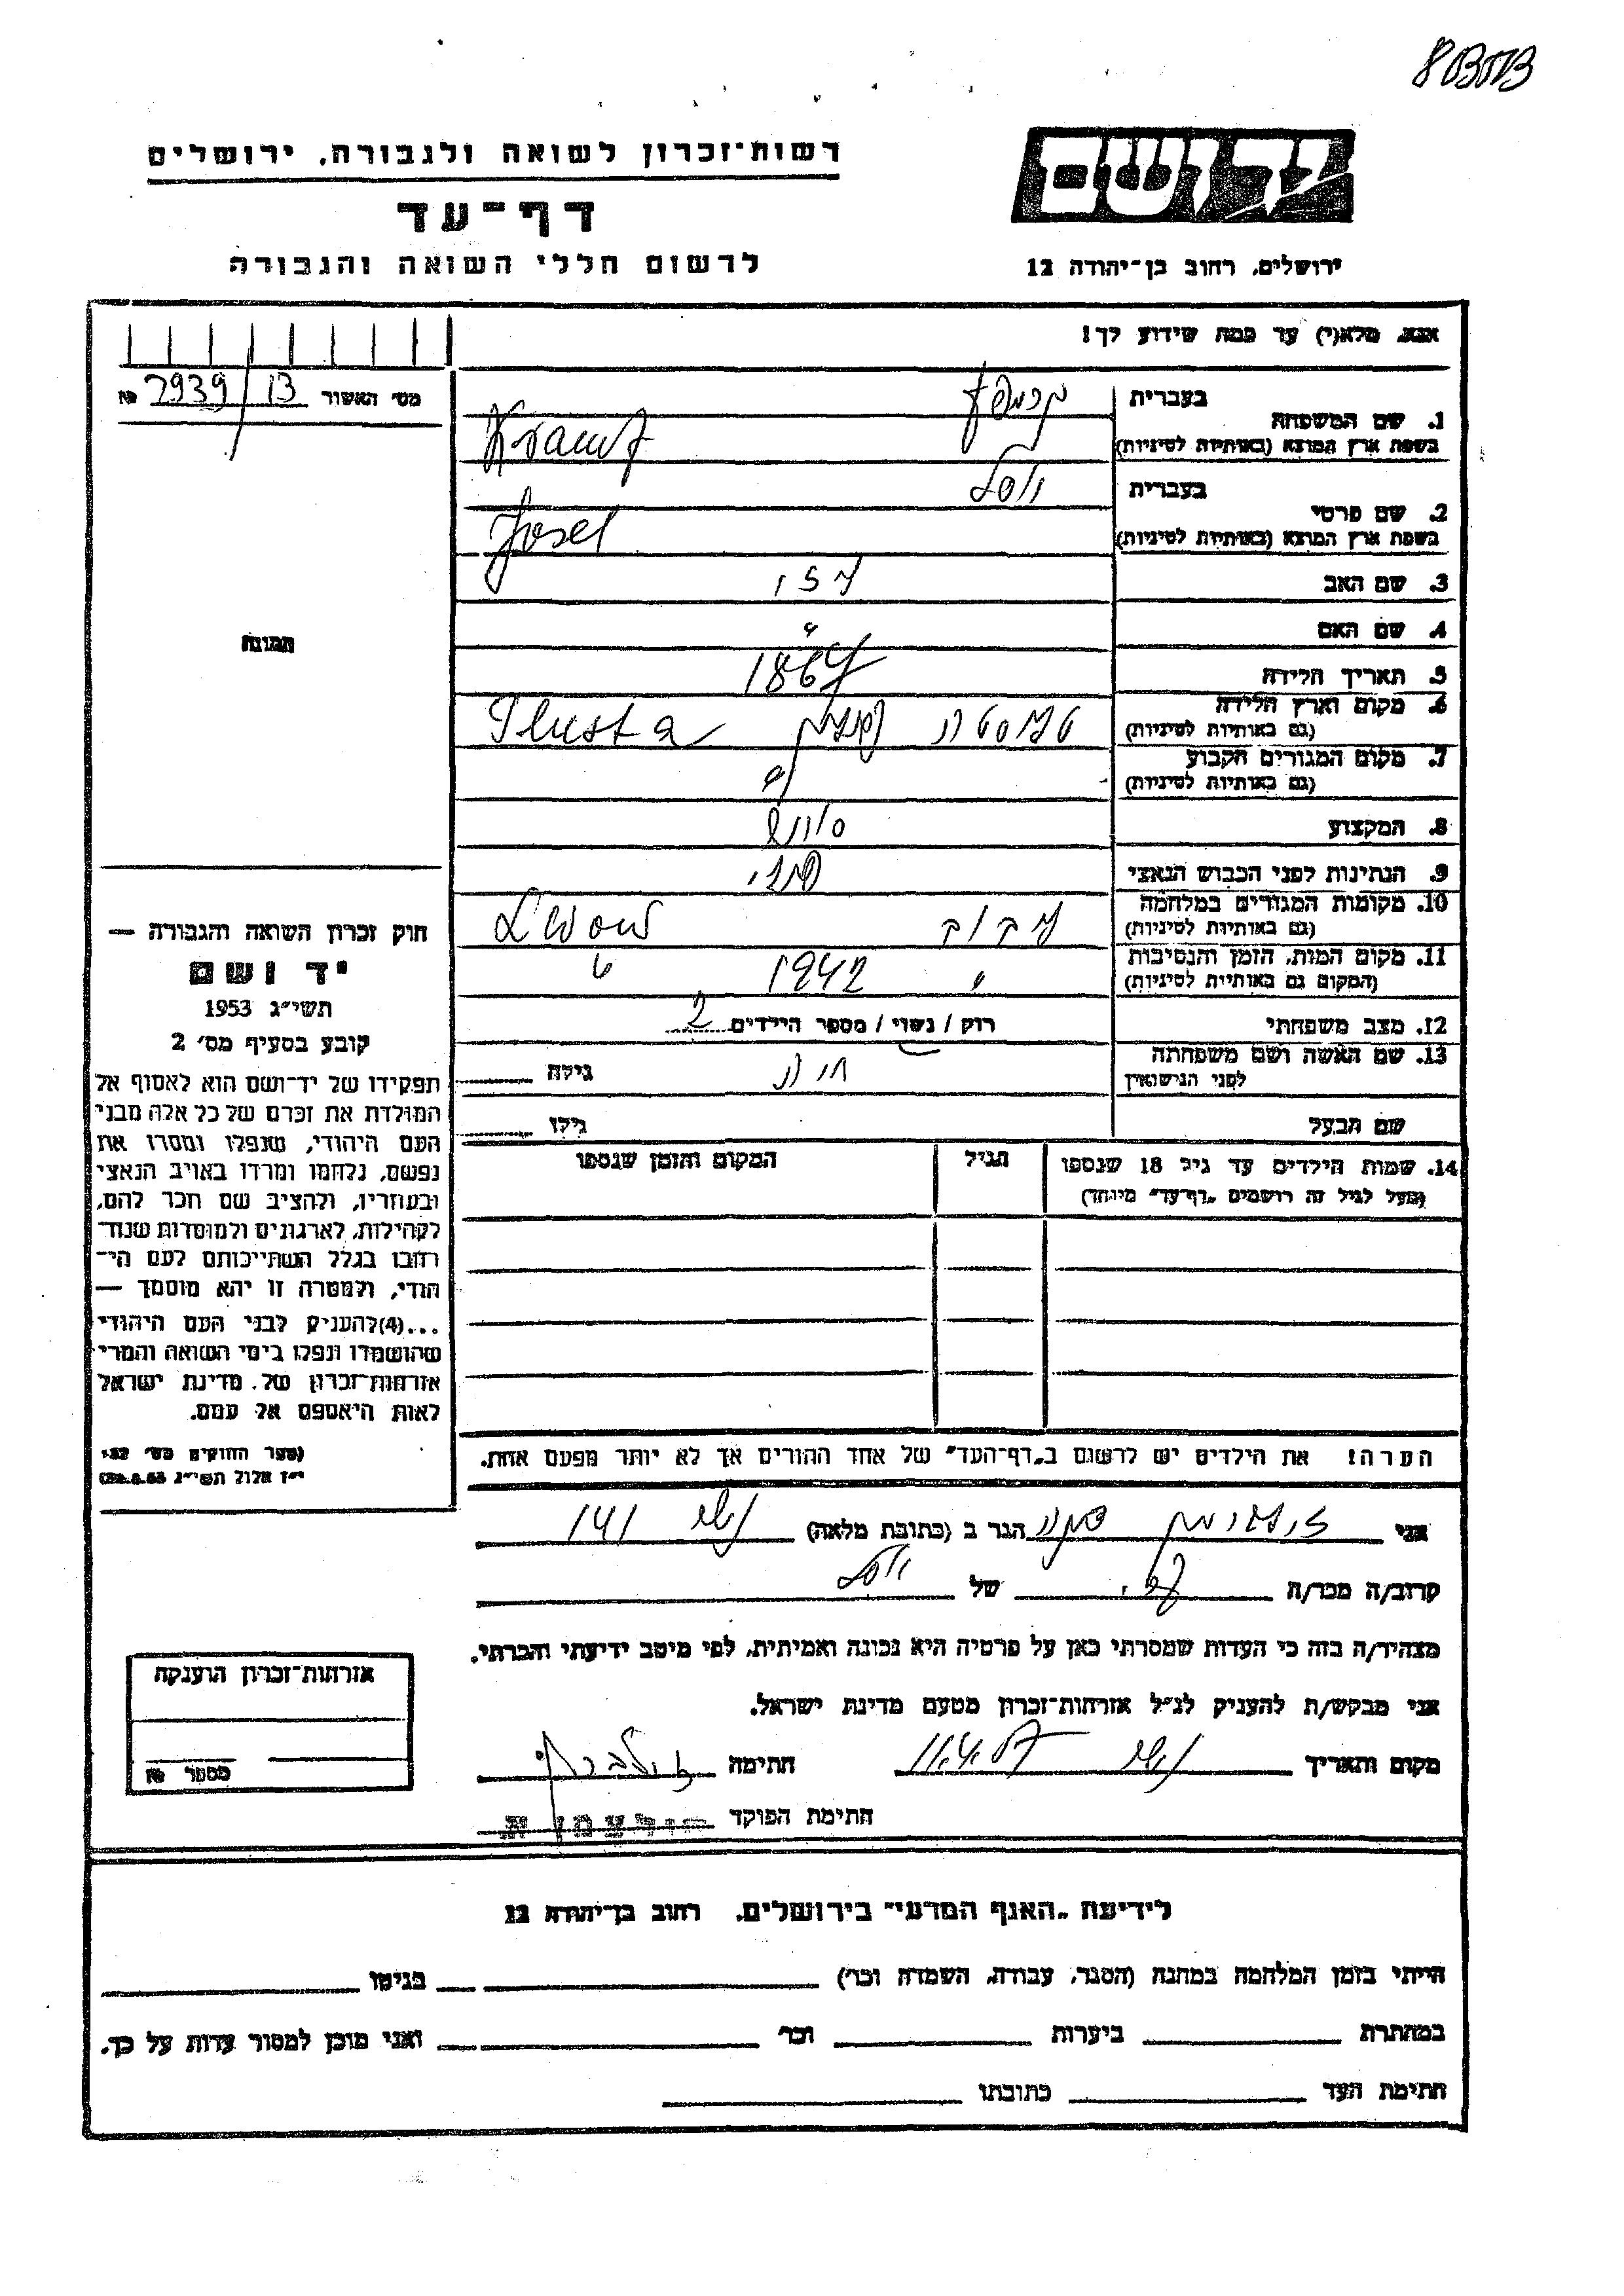 יד ושם
רשות־זכרון לשואה ולגבורה, ירושלים
דף־עד
ירושלים, רחוב בן־יהודה 12
לרשום חללי השואה והגבורה
אנא, מלא(י) עד כמה שידוע לך!
מס׳ האשור 13/2939 №
1. שם המשפחה
בעברית קרמפף
בשפת ארץ המוצא (באותיות לטיניות) Krampf
2. שם פרטי
בעברית יוסל
בשפת ארץ המוצא (באותיות לטיניות) Josel
3. שם האב
4. שם האם
5. תאריך הלידה 1867
6. מקום וארץ הלידה
(גם באותיות לטיניות) טלוסטה פולין Tlusta
7. מקום המגורים הקבוע
(גם באותיות לטיניות) "
8. המקצוע סוחר
9. הנתינות לפני הכבוש הנאצי פולני
10. מקומות המגורים במלחמה
(גם באותיות לטיניות) לבוב Lwow
11. מקום המות, הזמן והנסיבות
(המקום גם באותיות לטיניות) " 1942 "
12. מצב משפחתי רוק / נשוי / מספר הילדים 2
13. שם האשה ושם משפחתה
לפני הנישואין חיה גילה
שם הבעל גילו
14. שמות הילדים עד גיל 18 שנספו
(מעל לגיל זה רושמים „דף־עד״ מיוחד)
הגיל
המקום והזמן שנספו
הערה! את הילדים יש לרשום ב„דף־העד״ של אחד ההורים אך לא יותר מפעם אחת.
תמונה
חוק זכרון השואה והגבורה —
יד ושם
תשי״ג 1953
קובע בסעיף מס׳ 2
תפקידו של יד־ושם הוא לאסוף אל
המולדת את זכרם של כל אלה מבני
העם היהודי, שנפלו ומסרו את
נפשם, נלחמו ומרדו באויב הנאצי
ובעוזריו, ולהציב שם וזכר להם,
לקהילות, לארגונים ולמוסדות שנח־
רבו בגלל השתייכותם לעם הי־
הודי, ולמטרה זו יהא מוסמך —
...(4)להעניק לבני העם היהודי
שהושמדו ונפלו בימי השואה והמרי
אזרחות־זכרון של מדינת ישראל
לאות היאספם אל עמם.
(ספר החוקים מס׳ 132
י״ז אלול תשי״ג 28.8.53)
אני הגר ב (כתובת מלאה)
קרוב/ה מכר/ה של יוסל
מצהיר/ה בזה כי העדות שמסרתי כאן על פרטיה היא נכונה ואמיתית, לפי מיטב ידיעתי והכרתי.
אני מבקש/ת להעניק לנ״ל אזרחות־זכרון מטעם מדינת ישראל.
מקום ותאריך חתימה
חתימת הפוקד
אזרחות־זכרון הוענקה
מספר №
לידיעת „האגף המדעי״ בירושלים, רחוב בן־יהודה 12
הייתי בזמן המלחמה במחנה (הסגר, עבודה, השמדה וכו׳) בגיטו
במחתרת ביערות וכו׳ ואני מוכן למסור עדות על כך.
חתימת העד כתובתו